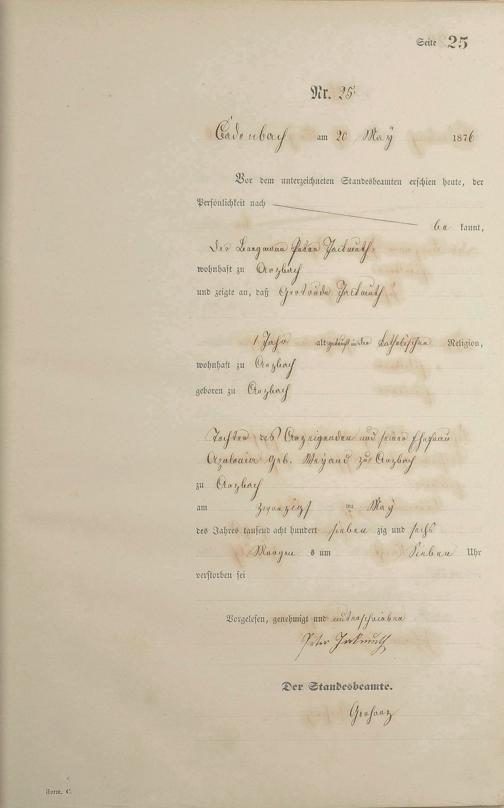 Seite 25
Nr. 25
Cadenbach am 20 May 1876
Vor dem unterzeichneten Standesbeamten erschien heute, der
Persönlichkeit nach
be kannt,
der Bergmann Peter
wohnhaft zu Arzbach
und zeigte an, daß Gertrude
1 Jahr alt, katholischen Religion,
wohnhaft zu Arzbach
geboren zu Arzbach
Tochter des Anzeigenden und seiner Ehefrau
Apolonia geb. zu Arzbach
zu Arzbach
am zwanzigst en May
des Jahres tausend acht hundert sieben zig und sechs
Morgen s um Sieben Uhr
verstorben sei
Vorgelesen, genehmigt und unterschrieben
Peter
Der Standesbeamte.
Form. C.